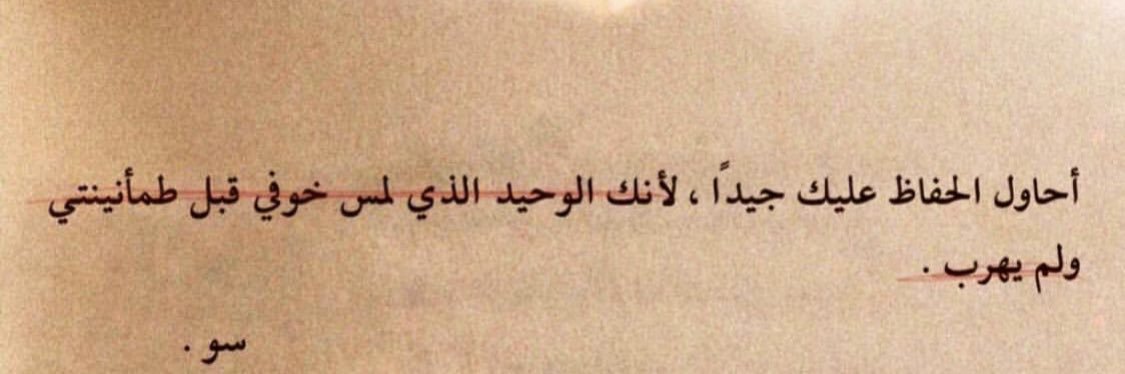 أحاول الحفاظ عليك جيداً ، لأنك الوحيد الذي لمس خوفي قبل طمأنينتي
ولم يهرب .
سو .